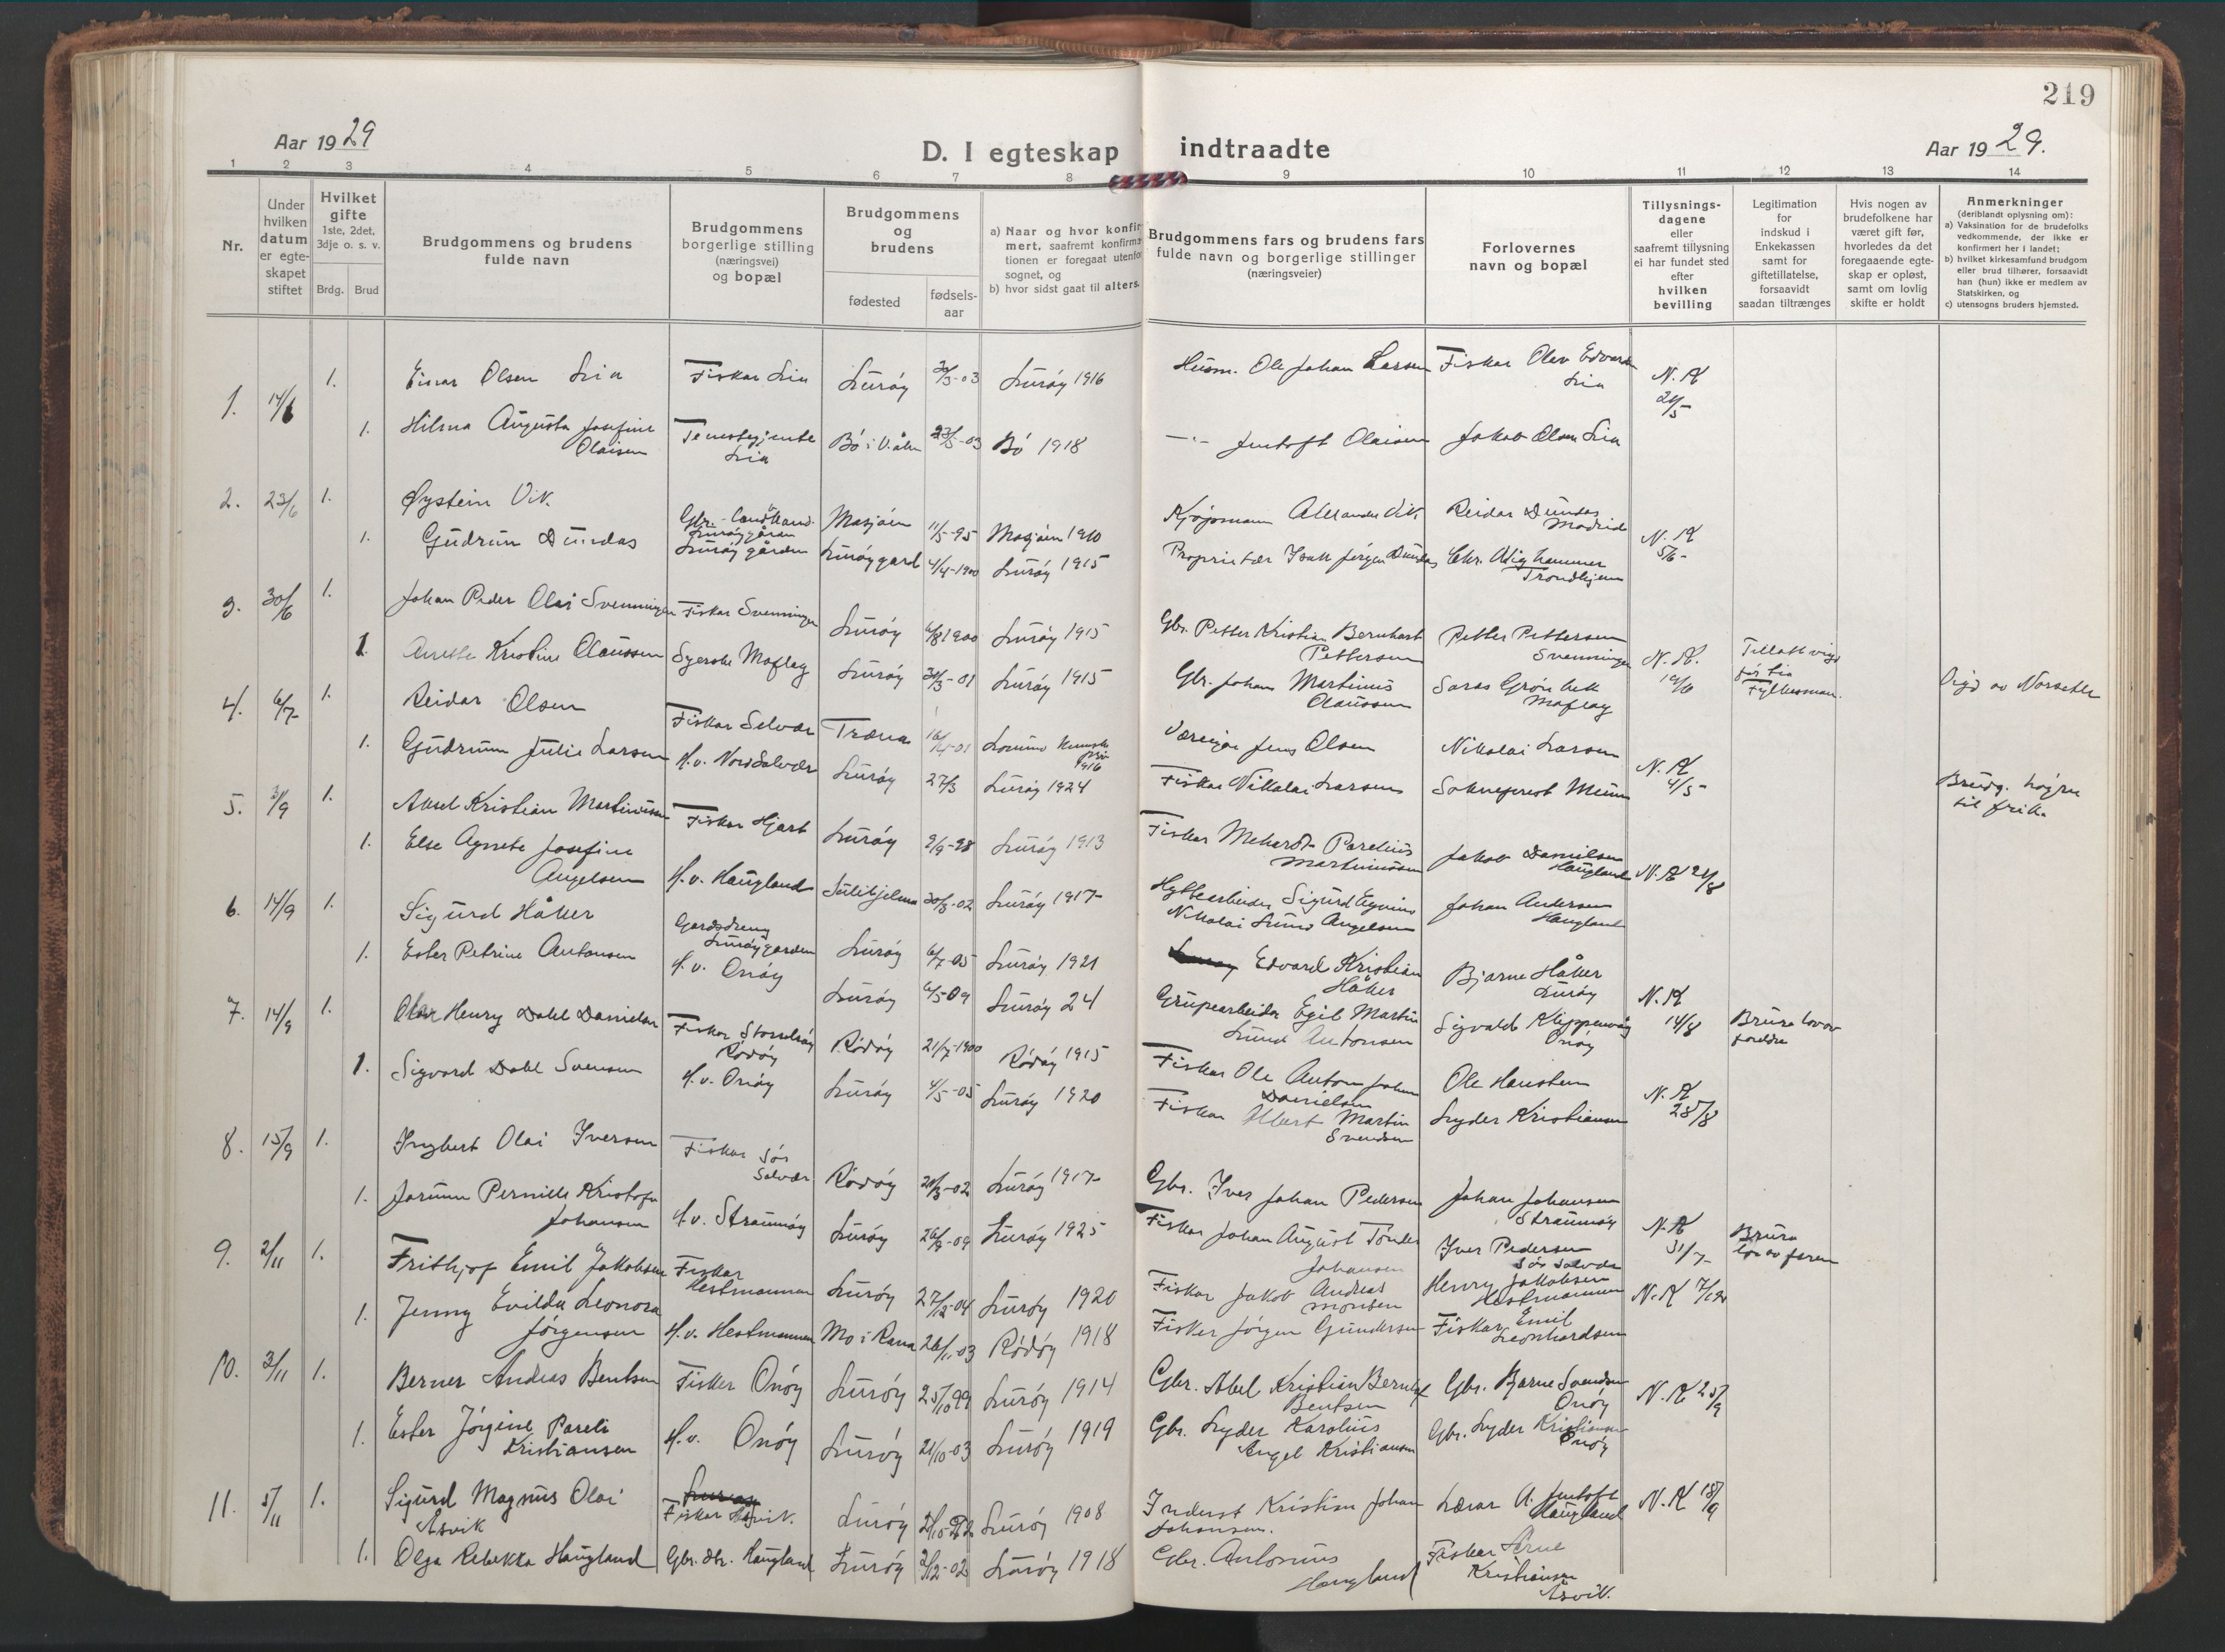 219
Aar 1929
D. I egteskap indtraadte
Aar 1929.
1 2 3 4 5 6 7 8 9 10 11 12 13 14
Nr.
Under hvilken datum er egte-skapet stiftet
Hvilket gifte 1ste, 2det, 3dje o. s. v.
Brdg. Brud
Brudgommens og brudens fulde navn
Brudgommens borgerlige stilling (næringsvei) og bopæl
Brudgommens og brudens
fødested
fødsels-aar
a) Naar og hvor konfir-mert, saafremt konfirma-tionen er foregaat utenfor sognet, og
b) hvor sidst gaat til alters.
Brudgommens fars og brudens fars fulde navn og borgerlige stillinger (næringsveier)
Forlovernes navn og bopæl
Tillysnings-dagene eller saafremt tillysning ei har fundet sted efter hvilken bevilling
Legitimation for indskud i Enkekassen samt for giftetillatelse, forsaavidt saadan tiltrænges
Hvis nogen av brudefolkene har været gift før, hvorledes da det foregaaende egte-skap er opløst, samt om lovlig skifte er holdt
Anmerkninger
(deriblandt oplysning om):
a) Vaksination for de brudefolks vedkommende, der ikke er konfirmert her i landet;
b) hvilket kirkesamfund brudgom eller brud tilhører, forsaavidt han (hun) ikke er medlem av Statskirken, og
c) utensogns bruders hjemsted.
1. 14/6 1. Einar Olsen Lia Fiskar Lia Lurøy -03 Lurøy 1916 Husm. Ole Johan Larsen Fiskar Olav Edvard Lia N. K
1. Hilma Augusta Josefine Olaisen Tenestgjente Lia Bø i V.ålen -03 Bø 1918 Jentoft Olaisen Jakob Olsen Lia
2. 23/6 1. Øystein Vik. Lurøygåren Mosjøen 11/5-95 Mosjøen 1910 Kjøpmann Alexander Vik Reidar Dundas Madrid N. K 5/6-
1. Gudrun Dundas Lurøygården Lurøygard 4/4-1900 Lurøy 1915 Proprietær Isak Jørgen Dundas Chr. Trondhjem
3. 30/6 1. Johan Peder Olai Svenningen Fiskar Svenningen Lurøy 6/8 1900 Lurøy 1915 Gbr. Petter Kristian Bernhart Pettersen Petter Pettersen Svenningen N. K. 19/6 Fylkesman.
1. Anette Kristine Olaussen Syerske Moflag Lurøy -01 Lurøy 1915 Gbr. Johan Martinus Olaussen Grønbek Moflag
4. 6/7 1. Reidar Olsen Fiskar Selvær Træna -01 Lovund 1916 Jens Olsen Nikolai Larsen N. K 4/5
1. Gudrunn Julie Larsen H.v. Nord Solvær Lurøy 27/3 Lurøy 1924 Fiskar Nikolai Larsen Sokneprest
5. 1. Aksel Kristian Martinussen Fiskar Hjart Lurøy 9/9-98 Lurøy 1913 Fiskar Parelius Martinussen Jakob Danielsen Haugland N. K 21/8 Brudg. høyre til frik.
1. Else Agnete Josefine Angelsen H.v. Haugland Sulitjelma 30/3-02 Lurøy 1917 Hyttearbeider Sigurd Nikolai Lund Angelsen Johan Andersen Haugland
6. 14/9 1. Sigurd Håker Gardsdreng Lurøygarden Lurøy 6/7-05 Lurøy 1921 Edvard Kristian Håker Bjarne Håker Lurøy N. K 14/8
1. Ester Petrine Antonsen H.v. Onøy Lurøy 6/5-09 Lurøy 24 Grupearbeider Egil Martin Lund Antonsen Sigvald Klippenvåg Onøy
7. 14/9 1. Olav Henry Dahl Danielsen Fiskar Storselsøy Rødøy Rødøy 21/7-1900 Rødøy 1915 Fiskar Ole Anton Johan Danielsen Ole Haustein N. K 28/8
1. Sigvard Dahl Svensen H.v. Onøy Lurøy 4/5-05 Lurøy 1920 Fiskar Albert Martin Svendsen Lyder Kristiansen
8. 15/9 1. Ingbert Olai Iversen Fiskar Sør Solvær Rødøy -02 Lurøy 1917 Gbr. Iver Johan Pedersen Johan Johansen Straumøy N. K 31/7
1. Jorunn Pernille Kristofa Johansen H.v. Straumøy Lurøy -09 Lurøy 1925 Fiskar Johan August Tønder Johansen Iver Pedersen Sør Solvær
9. 2/11 1. Frithjof Emil Jakobsen Fiskar Hestmannen Lurøy 27/12-04 Lurøy 1920 Fiskar Jakob Andreas Monsen Henry Jakobsen Hestmannen N. K
1. Jenny Evilda Leonora Jørgensen H.v. Hestmannen Mo i Rana 26/1-03 Rødøy 1918 Fisker Jørgen Gundersen Fiskar Emil Leonhardsen
10. 3/11 1. Berner Andreas Bentsen Fisker Onøy Lurøy 25/10 99 Lurøy 1914 Gbr. Abel Kristian Bentsen Gbr. Bjarne Svendsen Onøy N. K 25/9
1. Ester Jørgine Pareli Kristiansen H.v. Onøy Lurøy 21/10-03 Lurøy 1919 Gbr. Lyder Karolius Angel Kristiansen Gbr. Lyder Kristiansen Onøy
11. 5/11 1. Sigurd Magnus Olai Åsvik Fiskar Åsvik. Lurøy Lurøy 1908 Inderst Kristian Johan Johansen. Lærar A. Jentoft Haugland N. K 18/9
1. Olga Rebekka Haugland Gbr. dtr. Haugland Lurøy 2/12-02 Lurøy 1918 Gbr. Antonius Haugland Fiskar Arne Kristiansen Åsvik.